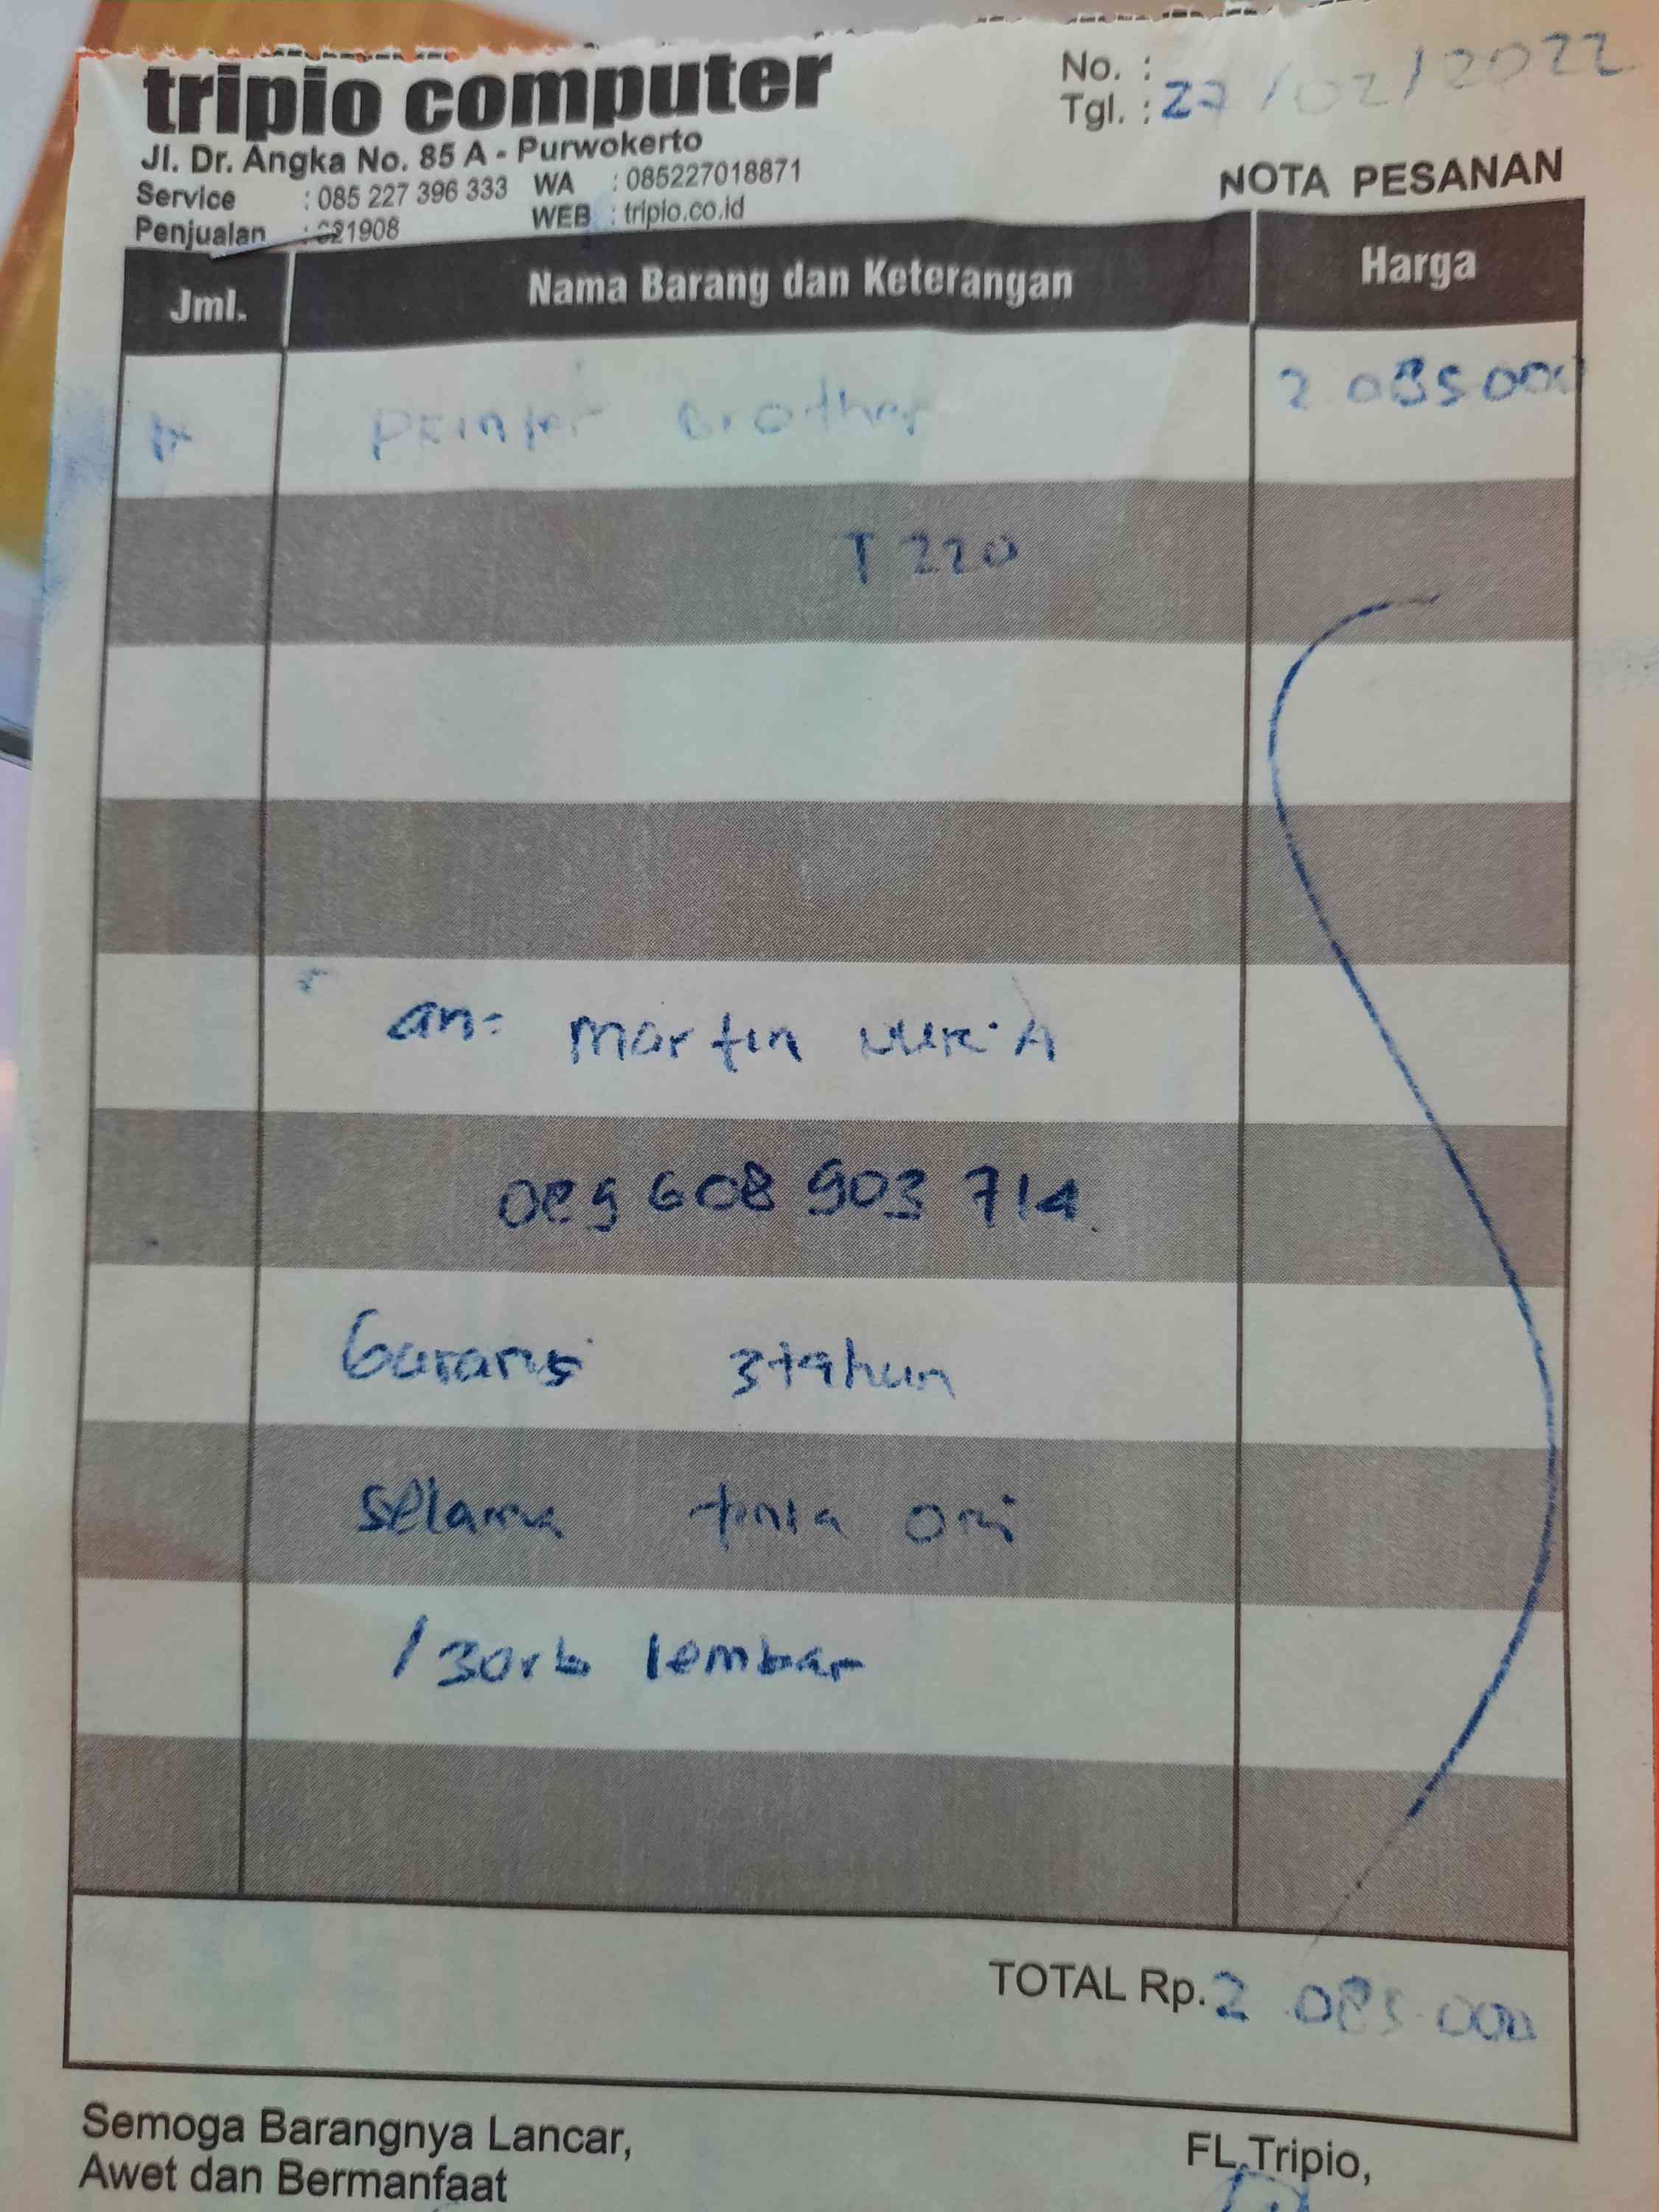 tripio computer
Jl. Dr. Angka No. 85 A - Purwokerto
Service : 085 227 396 333 WA : 085227018871
Penjualan : 621908 WEB : tripio.co.id
No. :
Tgl. : 27/02/2022
NOTA PESANAN
Jml. Nama Barang dan Keterangan Harga
1x Printer Brother 2.085.000
T 220
an: Martin Nur A
089 608 903 714
Garansi 3 tahun
selama tinta ori
/ 30rb lembar
TOTAL Rp. 2.085.000
Semoga Barangnya Lancar,
Awet dan Bermanfaat
FL.Tripio,